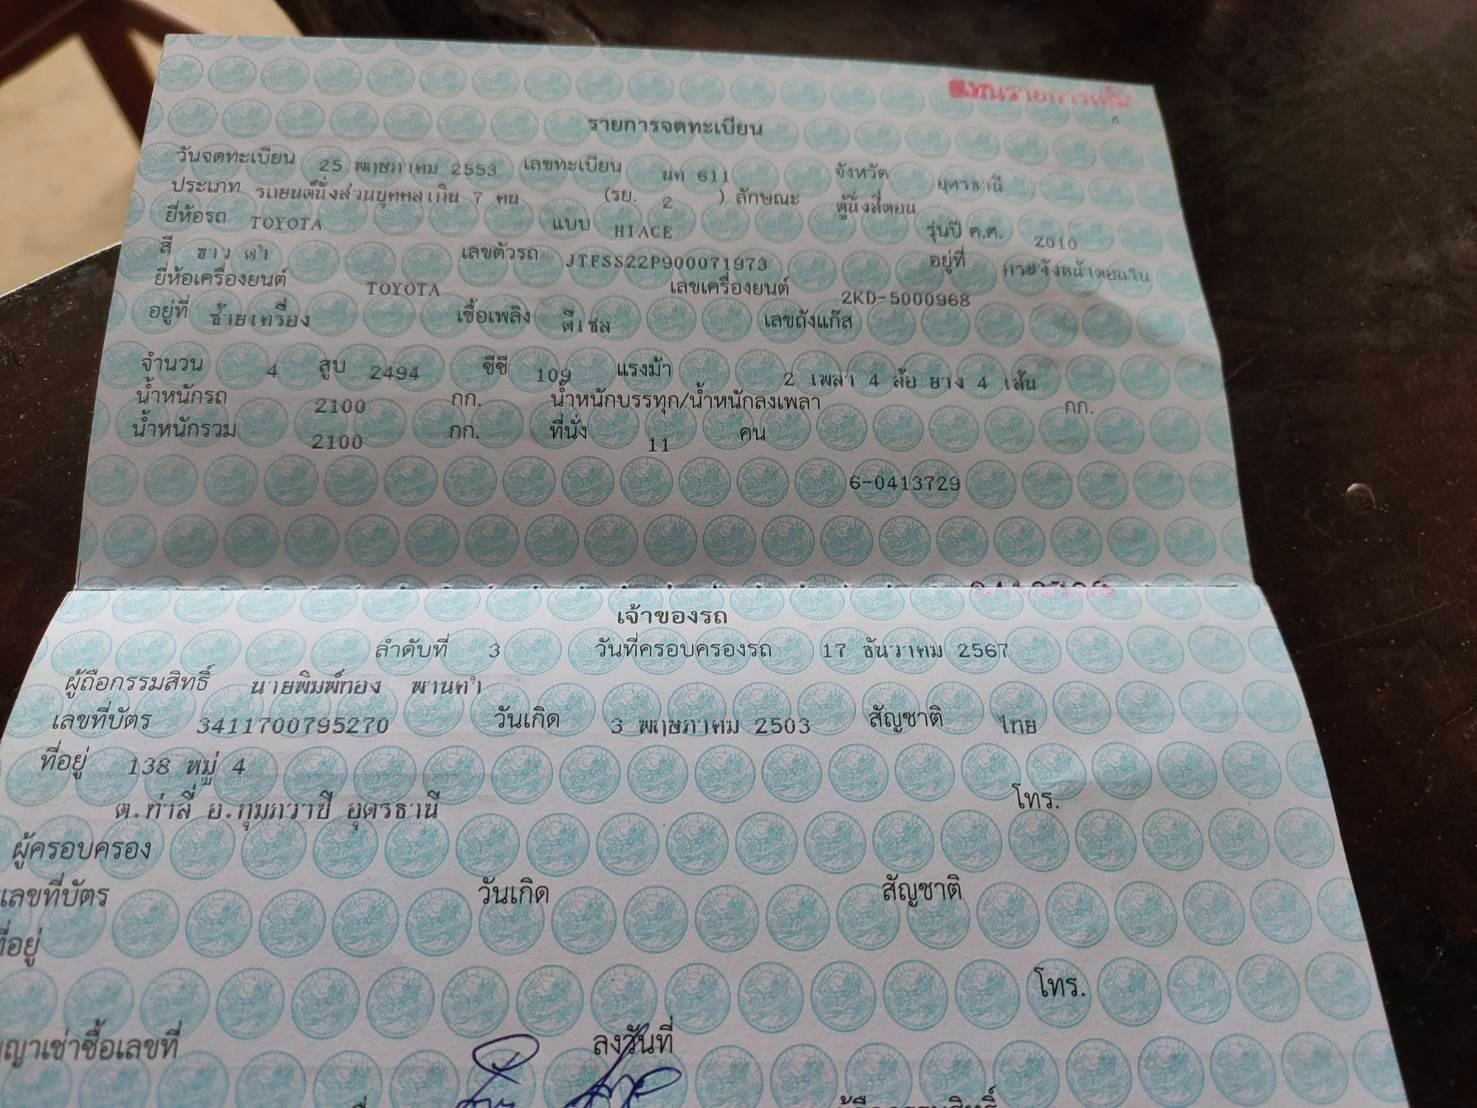 แทนรายการเดิม
รายการจดทะเบียน
วันจดทะเบียน 25 พฤษภาคม 2553 เลขทะเบียน นค 611 จังหวัด อุดรธานี
ประเภท รถยนต์นั่งส่วนบุคคลเกิน 7 คน (รย. 2 ) ลักษณะ ตู้นั่งสี่ตอน
ยี่ห้อรถ TOYOTA แบบ HIACE รุ่นปี ค.ศ. 2010
สี ขาว ดำ เลขตัวรถ JTFSS22P900071973 อยู่ที่ กระจังหน้าตอนใน
ยี่ห้อเครื่องยนต์ TOYOTA เลขเครื่องยนต์ 2KD-5000968
อยู่ที่ ซ้ายเครื่อง เชื้อเพลิง ดีเซล เลขถังแก๊ส
จำนวน 4 สูบ 2494 ซีซี 109 แรงม้า 2 เพลา 4 ล้อ ยาง 4 เส้น
น้ำหนักรถ 2100 กก. น้ำหนักบรรทุก/น้ำหนักลงเพลา กก.
น้ำหนักรวม 2100 กก. ที่นั่ง 11 คน
6-0413729
เจ้าของรถ
ลำดับที่ 3 วันที่ครอบครองรถ 17 ธันวาคม 2567
ผู้ถือกรรมสิทธิ์ นายพิมพ์ทอง พานคำ
เลขที่บัตร 3411700795270 วันเกิด 3 พฤษภาคม 2503 สัญชาติ ไทย
ที่อยู่ 138 หมู่ 4
ต.ท่าลี่ อ.กุมภวาปี อุดรธานี โทร.
ผู้ครอบครอง
เลขที่บัตร วันเกิด สัญชาติ
ที่อยู่
โทร.
ญาเช่าซื้อเลขที่ ลงวันที่
ผู้ถือกรรมสิทธิ์